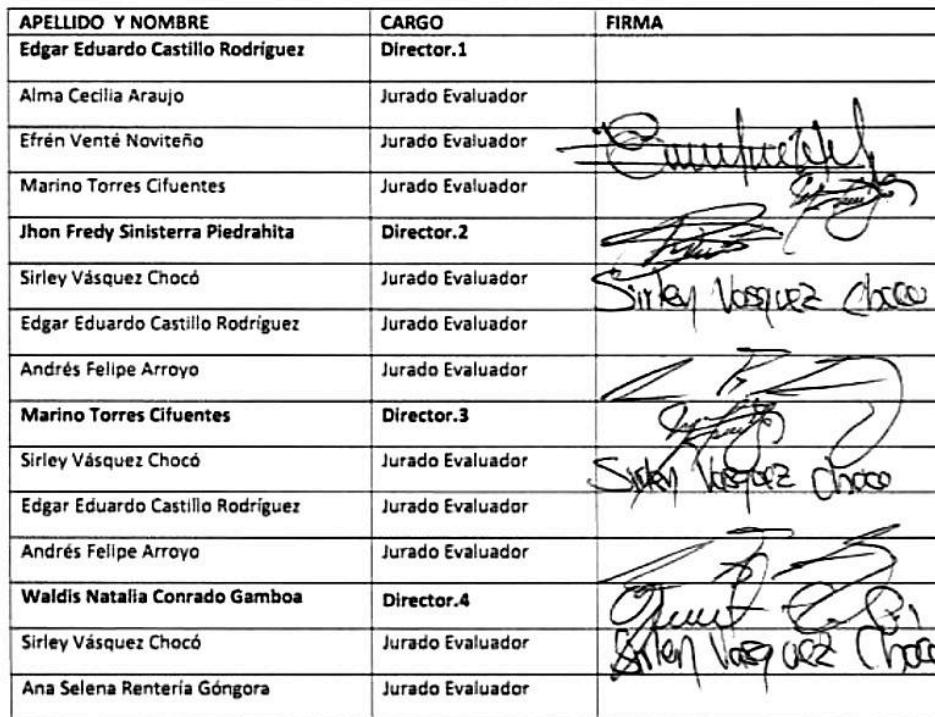 APELLIDO Y NOMBRE CARGO FIRMA
Edgar Eduardo Castillo Rodríguez Director.1
Alma Cecilia Araujo Jurado Evaluador
Efrén Venté Noviteño Jurado Evaluador
Marino Torres Cifuentes Jurado Evaluador
Jhon Fredy Sinisterra Piedrahita Director.2
Sirley Vásquez Chocó Jurado Evaluador Sirley Vasquez Choco
Edgar Eduardo Castillo Rodríguez Jurado Evaluador
Andrés Felipe Arroyo Jurado Evaluador
Marino Torres Cifuentes Director.3
Sirley Vásquez Chocó Jurado Evaluador Sirley Vasquez Choco
Edgar Eduardo Castillo Rodríguez Jurado Evaluador
Andrés Felipe Arroyo Jurado Evaluador
Waldis Natalia Conrado Gamboa Director.4
Sirley Vásquez Chocó Jurado Evaluador Sirley Vasquez Choco
Ana Selena Rentería Góngora Jurado Evaluador